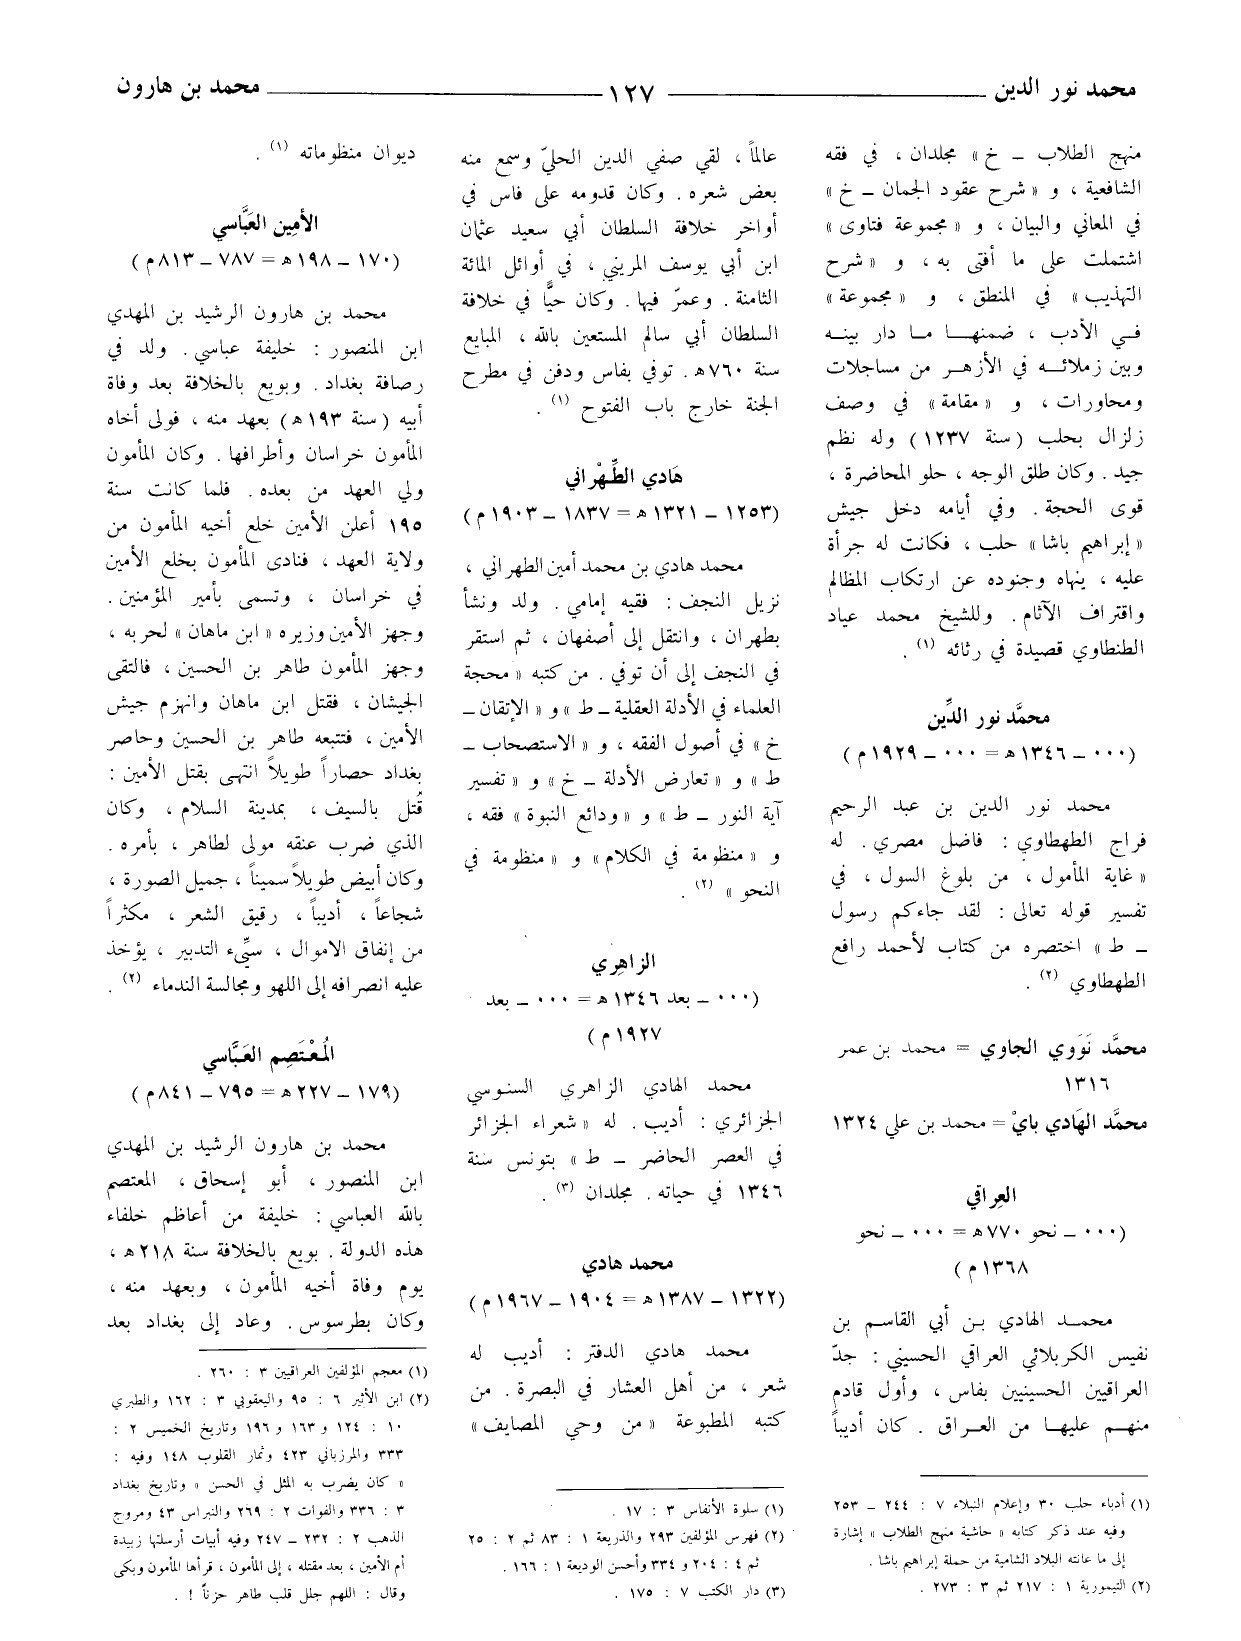 محمد نور الدين ــــ ١٢٧ ــــ محمد بن هارون
منهج الطلاب ــ خ » مجلدان ، في فقه
الشافعية ، و « شرح عقود الجمان ــ خ »
في المعاني والبيان ، و « مجموعة فتاوى »
اشتملت على ما أفتى به ، و « شرح
التهذيب » في المنطق ، و « مجموعة »
في الأدب ، ضمنها ما دار بينه
وبين زملائه في الأزهر من مساجلات
ومحاورات ، و « مقامة » في وصف
زلزال بحلب ( سنة ١٢٣٧ ) وله نظم
جيد . وكان طلق الوجه ، حلو المحاضرة ،
قوى الحجة . وفي أيامه دخل جيش
« إبراهيم باشا » حلب ، فكانت له جرأة
عليه ، ينهاه وجنوده عن ارتكاب المظالم
واقتراف الآثام . وللشيخ محمد عياد
الطنطاوي قصيدة في رثائه (١) .
محمَّد نور الدِّين
( ٠٠٠ ــ ١٣٤٦ هـ = ٠٠٠ ــ ١٩٢٩ م )
محمد نور الدين بن عبد الرحيم
فراج الطهطاوي : فاضل مصري . له
« غاية المأمول ، من بلوغ السول ، في
تفسير قوله تعالى : لقد جاءكم رسول
ــ ط » اختصره من كتاب لأحمد رافع
الطهطاوي (٢) .
محمَّد نَوَوي الجاوي = محمد بن عمر
١٣١٦
محمَّد الهَادي بايْ = محمد بن علي ١٣٢٤
العِراقي
( ٠٠٠ ــ نحو ٧٧٠ هـ = ٠٠٠ ــ نحو
١٣٦٨ م )
محمد الهادي بن أبي القاسم بن
نفيس الكربلائي العراقي الحسيني : جدّ
العراقيين الحسينيين بفاس ، وأول قادم
منهم عليها من العراق . كان أديباً
(١) أدباء حلب ٣٠ وإعلام النبلاء ٧ : ٢٤٤ ــ ٢٥٣
وفيه عند ذكر كتابه « حاشية منهج الطلاب » إشارة
إلى ما عانته البلاد الشامية من حملة إبراهيم باشا .
(٢) التيمورية ١ : ٢١٧ ثم ٣ : ٢٧٣ .
عالماً ، لقي صفي الدين الحليّ وسمع منه
بعض شعره . وكان قدومه على فاس في
أواخر خلافة السلطان أبي سعيد عثمان
ابن أبي يوسف المريني ، في أوائل المائة
الثامنة . وعمرّ فيها . وكان حيًّا في خلافة
السلطان أبي سالم المستعين بالله ، المبايع
سنة ٧٦٠ هـ . توفي بفاس ودفن في مطرح
الجنة خارج باب الفتوح (١) .
هَادي الطِّهْراني
( ١٢٥٣ ــ ١٣٢١ هـ = ١٨٣٧ ــ ١٩٠٣ م )
محمد هادي بن محمد أمين الطهراني ،
نزيل النجف : فقيه إمامي . ولد ونشأ
بطهران ، وانتقل إلى أصفهان ، ثم استقر
في النجف إلى أن توفي . من كتبه « محجة
العلماء في الأدلة العقلية ــ ط » و « الإتقان ــ
خ » في أصول الفقه ، و « الاستصحاب ــ
ط » و « تعارض الأدلة ــ خ » و « تفسير
آية النور ــ ط » و « ودائع النبوة » فقه ،
و « منظومة في الكلام » و « منظومة في
النحو » (٢) .
الزاهِري
( ٠٠٠ ــ بعد ١٣٤٦ هـ = ٠٠٠ ــ بعد
١٩٢٧ م )
محمد الهادي الزاهري السنوسي
الجزائري : أديب . له « شعراء الجزائر
في العصر الحاضر ــ ط » بتونس سنة
١٣٤٦ في حياته . مجلدان (٣) .
محمد هادي
( ١٣٢٢ ــ ١٣٨٧ هـ = ١٩٠٤ ــ ١٩٦٧ م )
محمد هادي الدفتر : أديب له
شعر ، من أهل العشار في البصرة . من
كتبه المطبوعة « من وحي المصايف »
(١) سلوة الأنفاس ٣ : ١٧ .
(٢) فهرس المؤلفين ٢٩٣ والذريعة ١ : ٨٣ ثم ٢ : ٢٥
ثم ٤ : ٢٠٤ و ٣٣٤ وأحسن الوديعة ١ : ١٦٦ .
(٣) دار الكتب ٧ : ١٧٥ .
ديوان منظوماته (١) .
الأمِين العَبَّاسي
( ١٧٠ ــ ١٩٨ هـ = ٧٨٧ ــ ٨١٣ م )
محمد بن هارون الرشيد بن المهدي
ابن المنصور : خليفة عباسي . ولد في
رصافة بغداد . وبويع بالخلافة بعد وفاة
أبيه ( سنة ١٩٣ هـ ) بعهد منه ، فولى أخاه
المأمون خراسان وأطرافها . وكان المأمون
ولي العهد من بعده . فلما كانت سنة
١٩٥ أعلن الأمين خلع أخيه المأمون من
ولاية العهد ، فنادى المأمون بخلع الأمين
في خراسان ، وتسمى بأمير المؤمنين .
وجهز الأمين وزيره « ابن ماهان » لحربه ،
وجهز المأمون طاهر بن الحسين ، فالتقى
الجيشان ، فقتل ابن ماهان وانهزم جيش
الأمين ، فتتبعه طاهر بن الحسين وحاصر
بغداد حصاراً طويلاً انتهى بقتل الأمين :
قُتل بالسيف ، بمدينة السلام ، وكان
الذي ضرب عنقه مولى لطاهر ، بأمره .
وكان أبيض طويلاً سميناً ، جميل الصورة ،
شجاعاً ، أديباً ، رقيق الشعر ، مكثراً
من إنفاق الاموال ، سيِّىء التدبير ، يؤخذ
عليه انصرافه إلى اللهو ومجالسة الندماء (٢) .
المُعْتَصِم العَبَّاسي
( ١٧٩ ــ ٢٢٧ هـ = ٧٩٥ ــ ٨٤١ م )
محمد بن هارون الرشيد بن المهدي
ابن المنصور ، أبو إسحاق ، المعتصم
بالله العباسي : خليفة من أعاظم خلفاء
هذه الدولة . بويع بالخلافة سنة ٢١٨ هـ ،
يوم وفاة أخيه المأمون ، وبعهد منه ،
وكان بطرسوس . وعاد إلى بغداد بعد
(١) معجم المؤلفين العراقيين ٣ : ٢٦٠ .
(٢) ابن الأثير ٦ : ٩٥ واليعقوبي ٣ : ١٦٢ والطبري
١٠ : ١٢٤ و ١٦٣ و ١٩٦ وتاريخ الخميس ٢ :
٣٣٣ والمرزباني ٤٢٣ وثمار القلوب ١٤٨ وفيه :
« كان يضرب به المثل في الحسن » وتاريخ بغداد
٣ : ٣٣٦ والفوات ٢ : ٢٦٩ والنبراس ٤٣ ومروج
الذهب ٢ : ٢٣٢ ــ ٢٤٧ وفيه أبيات أرسلتها زبيدة
أم الأمين ، بعد مقتله ، إلى المأمون ، قرأها المأمون وبكى
وقال : اللهم جلل قلب طاهر حزناً ! .